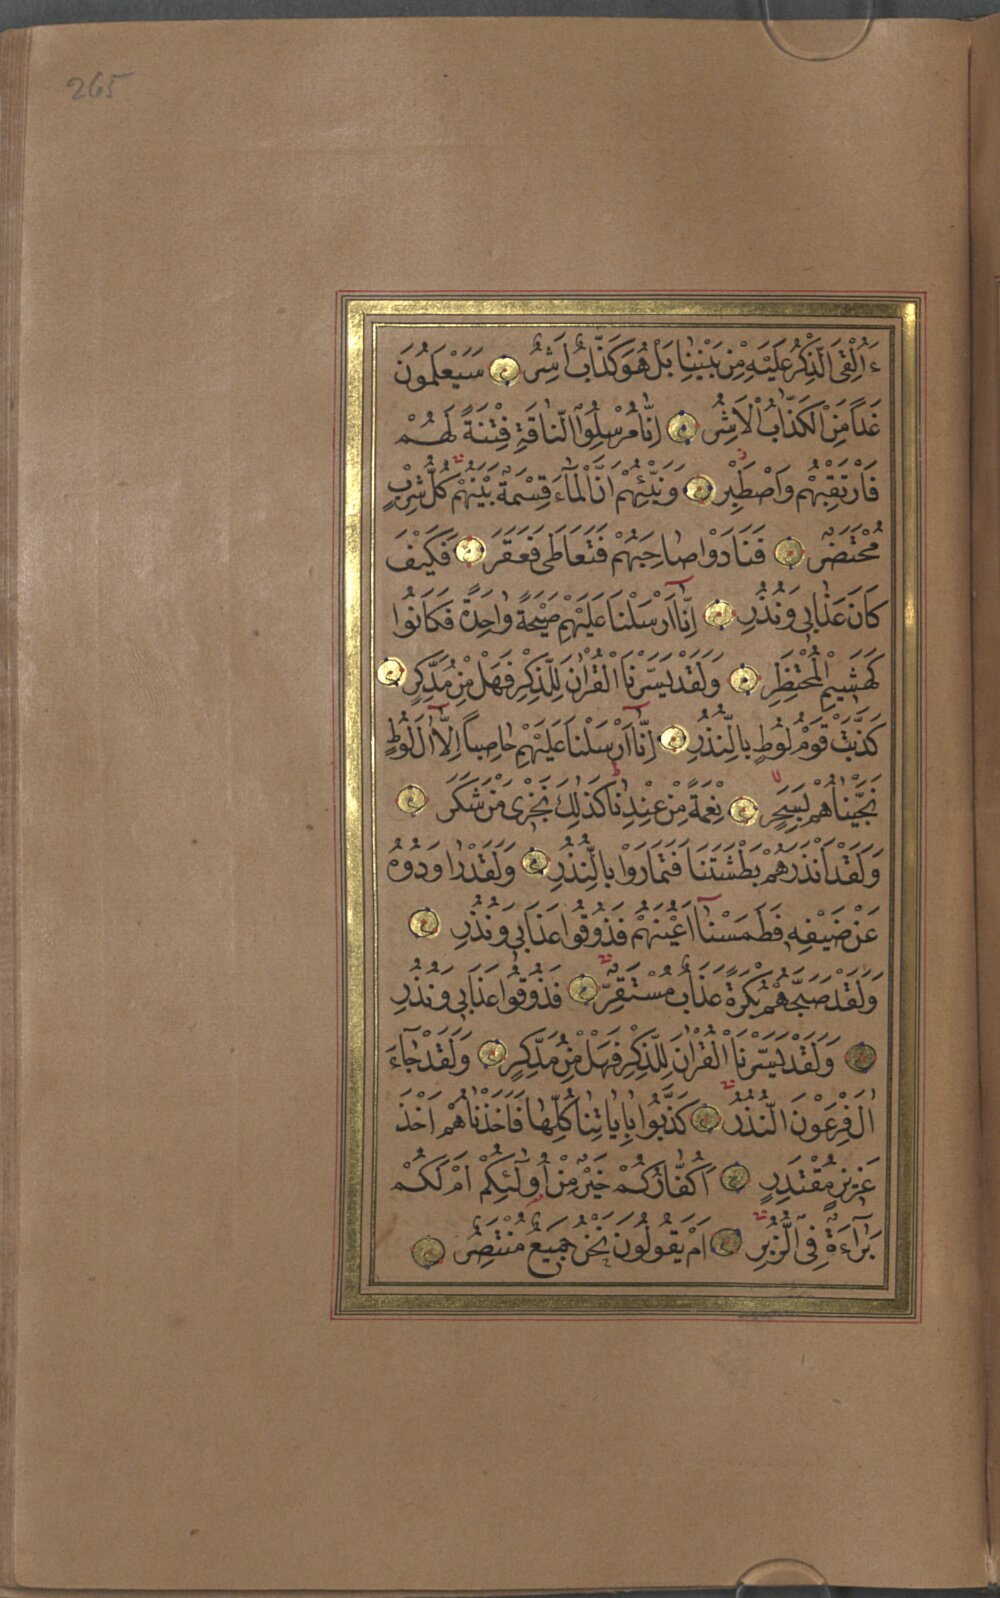 265
ءَاُلْقِيَ الذِّكْرُ عَلَيْهِ مِنْ بَيْنِنَا بَلْ هُوَ كَذَّابٌ اَشِرٌ سَيَعْلَمُونَ
غَدًا مَنِ الْكَذَّابُ الْاَشِرُ اِنَّا مُرْسِلُوا النَّاقَةِ فِتْنَةً لَهُمْ
فَارْتَقِبْهُمْ وَاصْطَبِرْ وَنَبِّئْهُمْ اَنَّ الْمَآءَ قِسْمَةٌ بَيْنَهُمْ كُلُّ شِرْبٍ
مُحْتَضَرٌ فَنَادَوْا صَاحِبَهُمْ فَتَعَاطَى فَعَقَرَ فَكَيْفَ
كَانَ عَذَابِي وَنُذُرِ اِنَّآ اَرْسَلْنَا عَلَيْهِمْ صَيْحَةً وَاحِدَةً فَكَانُوا
كَهَشِيمِ الْمُحْتَظِرِ وَلَقَدْ يَسَّرْنَا الْقُرْاٰنَ لِلذِّكْرِ فَهَلْ مِنْ مُدَّكِرٍ
كَذَّبَتْ قَوْمُ لُوطٍ بِالنُّذُرِ اِنَّآ اَرْسَلْنَا عَلَيْهِمْ حَاصِبًا اِلَّآ اٰلَ لُوطٍ
نَجَّيْنَاهُمْ بِسَحَرٍ نِعْمَةً مِنْ عِنْدِنَا كَذٰلِكَ نَجْزِي مَنْ شَكَرَ
وَلَقَدْ اَنْذَرَهُمْ بَطْشَتَنَا فَتَمَارَوْا بِالنُّذُرِ وَلَقَدْ رَاوَدُوهُ
عَنْ ضَيْفِهِ فَطَمَسْنَآ اَعْيُنَهُمْ فَذُوقُوا عَذَابِي وَنُذُرِ
وَلَقَدْ صَبَّحَهُمْ بُكْرَةً عَذَابٌ مُسْتَقِرٌّ فَذُوقُوا عَذَابِي وَنُذُرِ
وَلَقَدْ يَسَّرْنَا الْقُرْاٰنَ لِلذِّكْرِ فَهَلْ مِنْ مُدَّكِرٍ وَلَقَدْ جَآءَ
اٰلَ فِرْعَوْنَ النُّذُرُ كَذَّبُوا بِاٰيَاتِنَا كُلِّهَا فَاَخَذْنَاهُمْ اَخْذَ
عَزِيزٍ مُقْتَدِرٍ اَكُفَّارُكُمْ خَيْرٌ مِنْ اُولٰئِكُمْ اَمْ لَكُمْ
بَرَآءَةٌ فِي الزُّبُرِ اَمْ يَقُولُونَ نَحْنُ جَمِيعٌ مُنْتَصِرٌ